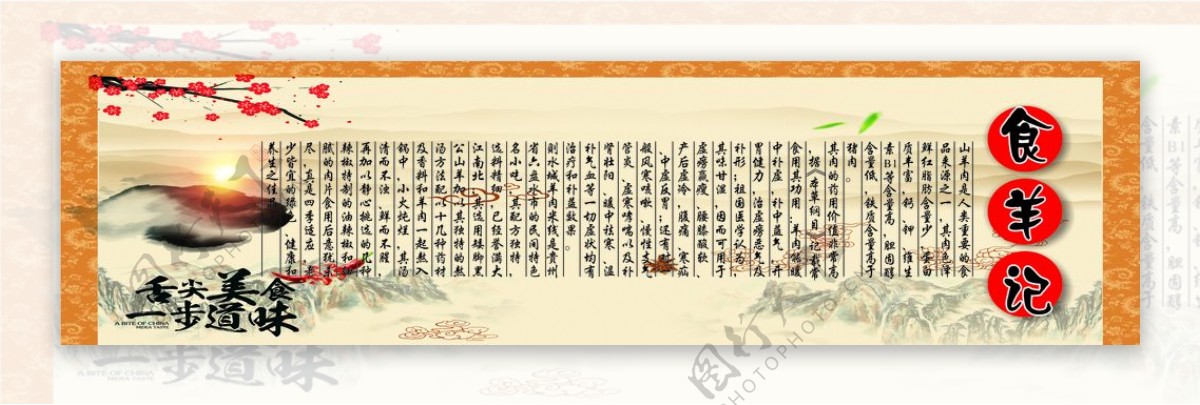 食羊记
山羊肉是人类重要的食
品来源之一,其肉色泽
鲜红脂肪含量少,蛋白
质丰富,钙、钾、维生
素B1等含量高,胆固醇
含量低,铁质含量高于
猪肉。
其肉的药用价值非常高
,据《本草纲目》记载常
食用其功用:羊肉能暖
中补虚,补中益气,开
胃健力,治虚痨恶气及
补形;祖国医学认为,
其味甘温,因而可用于
虚痨羸瘦、腰膝酸软、
产后虚冷,腹痛、寒病
、中虚反胃;还有对一
般风寒咳嗽、慢性支气
管炎、虚寒哮喘以及补
肾壮阳、暖中祛寒、温
补气血等一切虚状均有
治疗和补益效果。
则水城羊肉米线是贵州
省六盘水市的民间特色
名小吃,其配方独特,
选料精细,已经誉满大
江南北,其选用矮脚黑
山羊加以其独特的熬
汤方法配以十几种药材
及香料和羊肉一起熬入
锅中,小火炖煨,其汤
清而不浊,鲜而不腥,
再加以静心挑选的几种
辣椒特制的油辣椒和细
腻的肉片食用后意犹未
尽,真是四季适应,老
少皆宜的绿色、健康和
养生之佳品
舌尖美食
一步道味
A BITE OF CHINA
MIDEA TASTE
图行天下 PHOTOPHOTO.CN